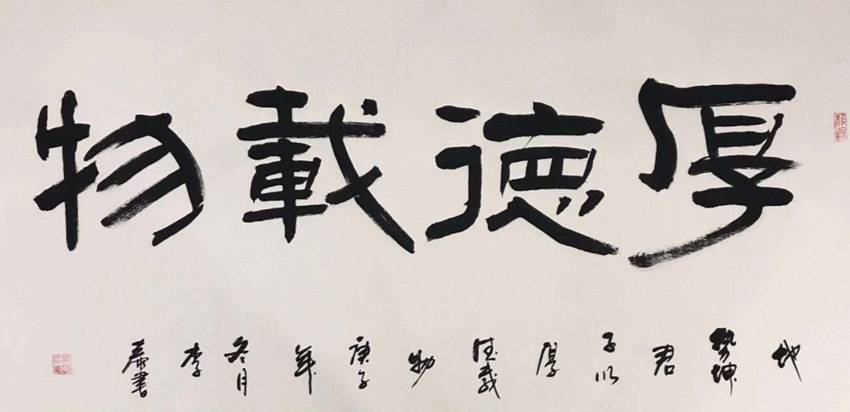 厚德載物
地勢坤君子以厚德載物庚子年冬月李